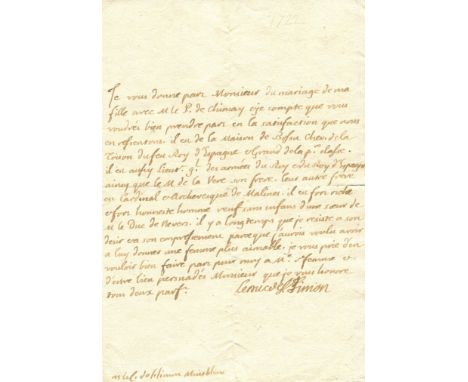 1722
Je vous donne part Monsieur du mariage de ma
fille avec M le P. de Chimay et je compte que vous
voudrés bien prendre part en la satisfaction que nous
en resentons. il est de la Maison de Bossu Chev. de la
Toison du feu Roy d'Espagne et Grand de la p.e classe.
il est aussy lieut. g. des armées du Roy et du Roy d'Espagne
ainsy que le M. de la Vere son frere. leur autre frere
est Cardinal et Archevesque de Malines. il est fort riche
et fort honneste homme veuf sans enfans d'une sœur de
M le Duc de Nevers. il y a longtemps que je resiste a son
desir et a son empressement parce que j'aurois voulu avoir
a luy donner une femme plus aimable. je vous prie d'en
vouloir bien faire part pour moy a M.e et
d'estre bien persuadés Monsieur que je vous honore
tous deux parf.
Le Duc de St Simon